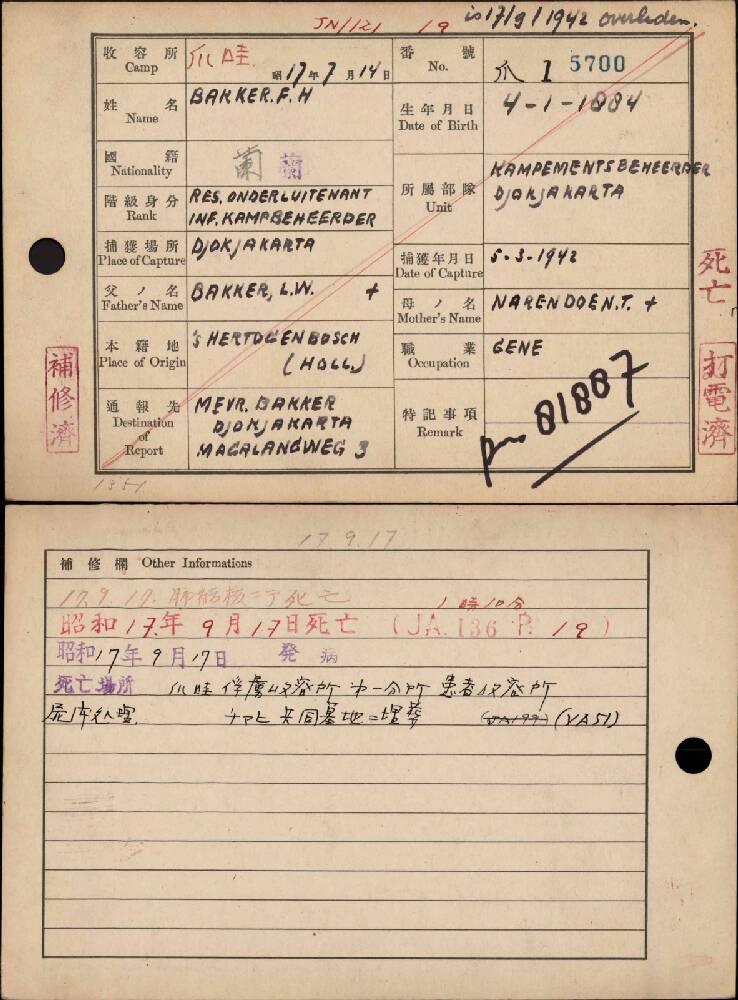 JN/121 19 is 17/9/1942 overleden.
收容所 Camp 爪哇. 昭17年7月14日
番號 No. 爪 I 5700
姓名 Name BAKKER. F. H
生年月日 Date of Birth 4-1-1884
國籍 Nationality 蘭 蘭
階級身分 Rank RES. ONDERLUITENANT
INF. KAMPBEHEERDER
所屬部隊 Unit KAMPEMENTSBEHEERDER
DJOKJAKARTA
捕獲場所 Place of Capture DJOKJAKARTA
捕獲年月日 Date of Capture 5-3-1942
父ノ名 Father's Name BAKKER, L.W. +
母ノ名 Mother's Name NARENDOEN.T. +
本籍地 Place of Origin 'S HERTOGENBOSCH
(HOLL.)
職業 Occupation GENE
通報先 Destination of Report MEVR. BAKKER
DJOKJAKARTA
MAGALANGWEG 3
特記事項 Remark 81887
死亡
打電濟
補修濟
1351
17.9.17
補修欄 Other Informations
17.9.19. 肺結核ニテ死亡
1時10分
昭和17年9月17日死亡 (JA.136 P. 19)
昭和17年9月17日 発病
死亡場所 爪哇俘虜収容所 第一分所 患者収容所
屍体処理 チマヒ共同墓地ニ埋葬 (JA199) (VA51)